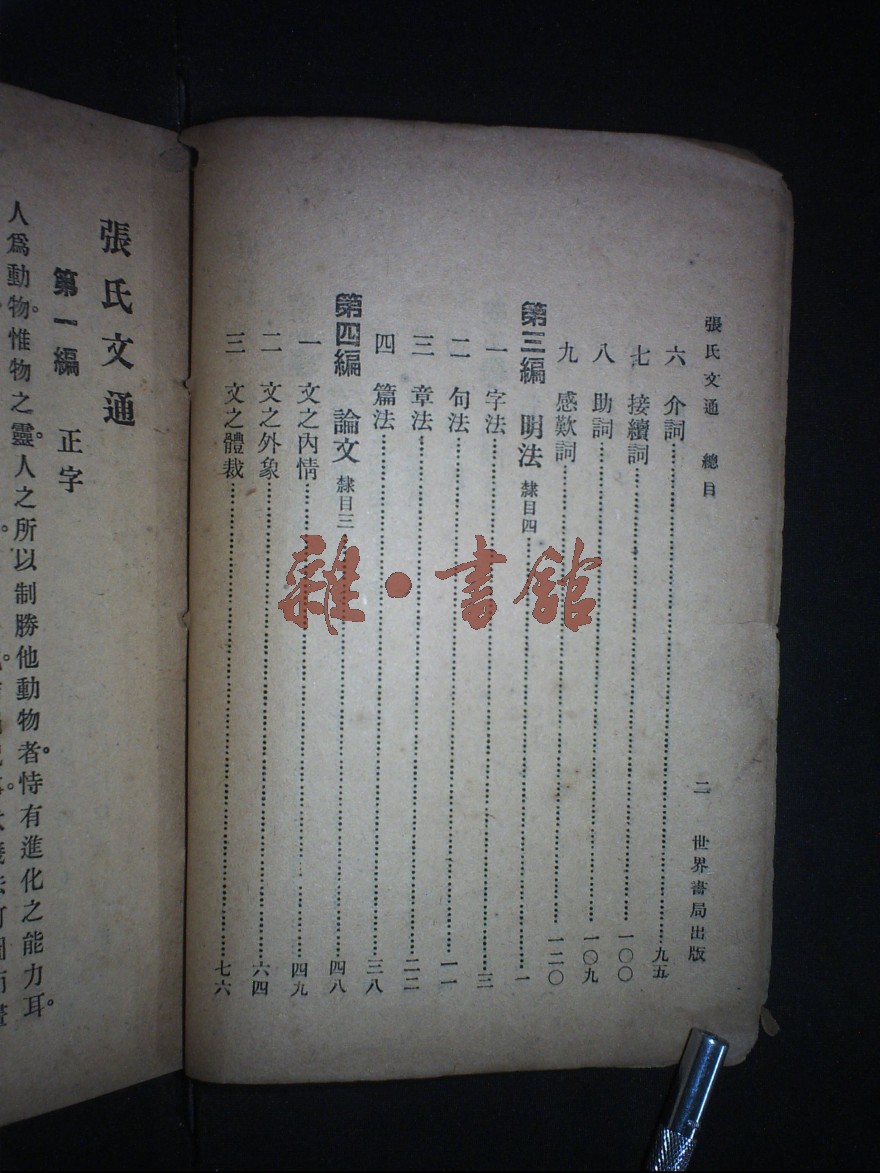 張氏文通　總目　二　世界書局出版
六　介詞……九五
七　接續詞……一〇〇
八　助詞……一〇九
九　感歎詞……一二〇
第三編　明法　隸目四……一
一　字法……三
二　句法……一一
三　章法……二二
四　篇法……三八
第四編　論文　隸目三……四八
一　文之內情……四九
二　文之外象……六四
三　文之體裁……七六
張氏文通
第一編　正字
人爲動物。惟物之靈。人之所以制勝他動物者。恃有進化之能力耳。
雜·書館